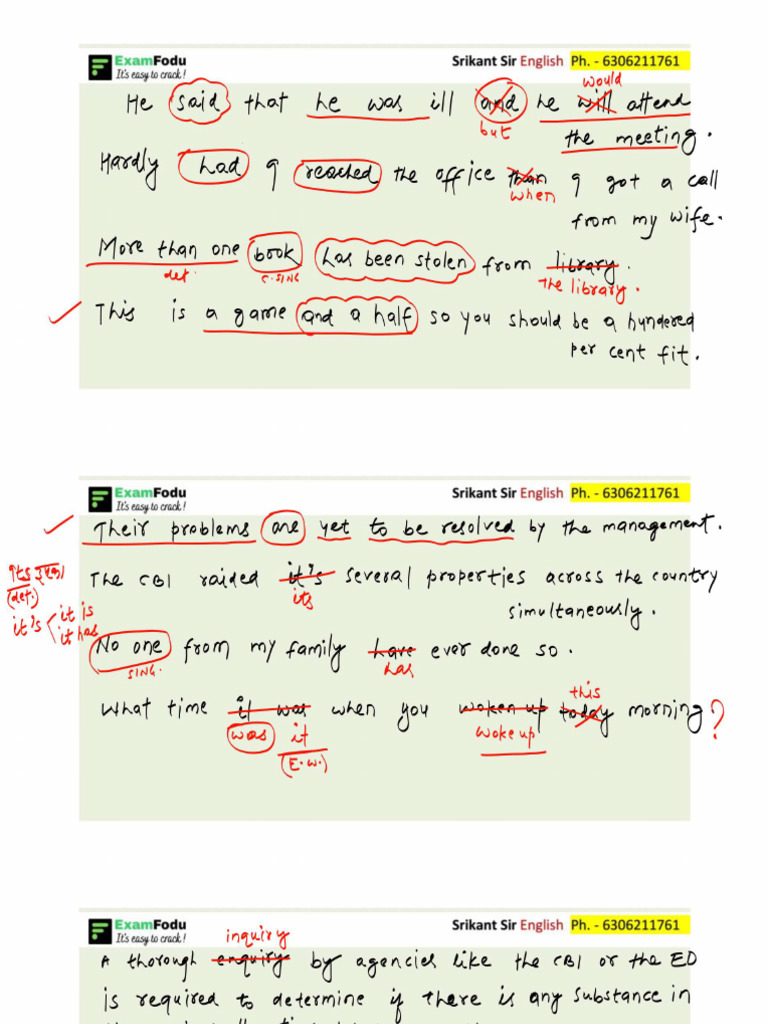 ExamFodu
It's easy to crack!
Srikant Sir English Ph. - 6306211761
would
He said that he was ill and he will attend
but
the meeting.
Hardly had I reached the office than I got a call
when
from my wife.
More than one book has been stolen from library.
det. C. SING the library.
This is a game and a half so you should be a hundered
per cent fit.
ExamFodu
It's easy to crack!
Srikant Sir English Ph. - 6306211761
Their problems are yet to be resolved by the management.
Its इसका
(det.)
it's it is
it has
The CBI raided it's several properties across the country
its
simultaneously.
No one from my family have ever done so.
SING. has
this
What time it was when you woken up today morning?
was it woke up
(E.W.)
ExamFodu
It's easy to crack!
Srikant Sir English Ph. - 6306211761
inquiry
A thorough enquiry by agencies like the CBI or the ED
is required to determine if there is any substance in